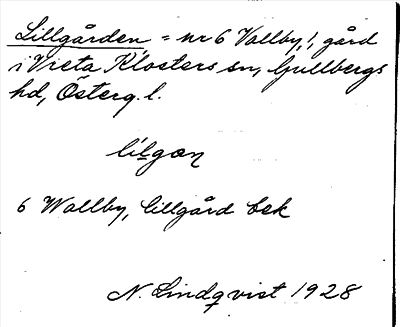 Lillgården, = nr 6 Vallby,!, gård
i Vreta Klosters sn, Gullbergs
hd, Österg. l.
lilgɑn
6 Wallby, Lillgård bsk
N. Lindqvist 1928